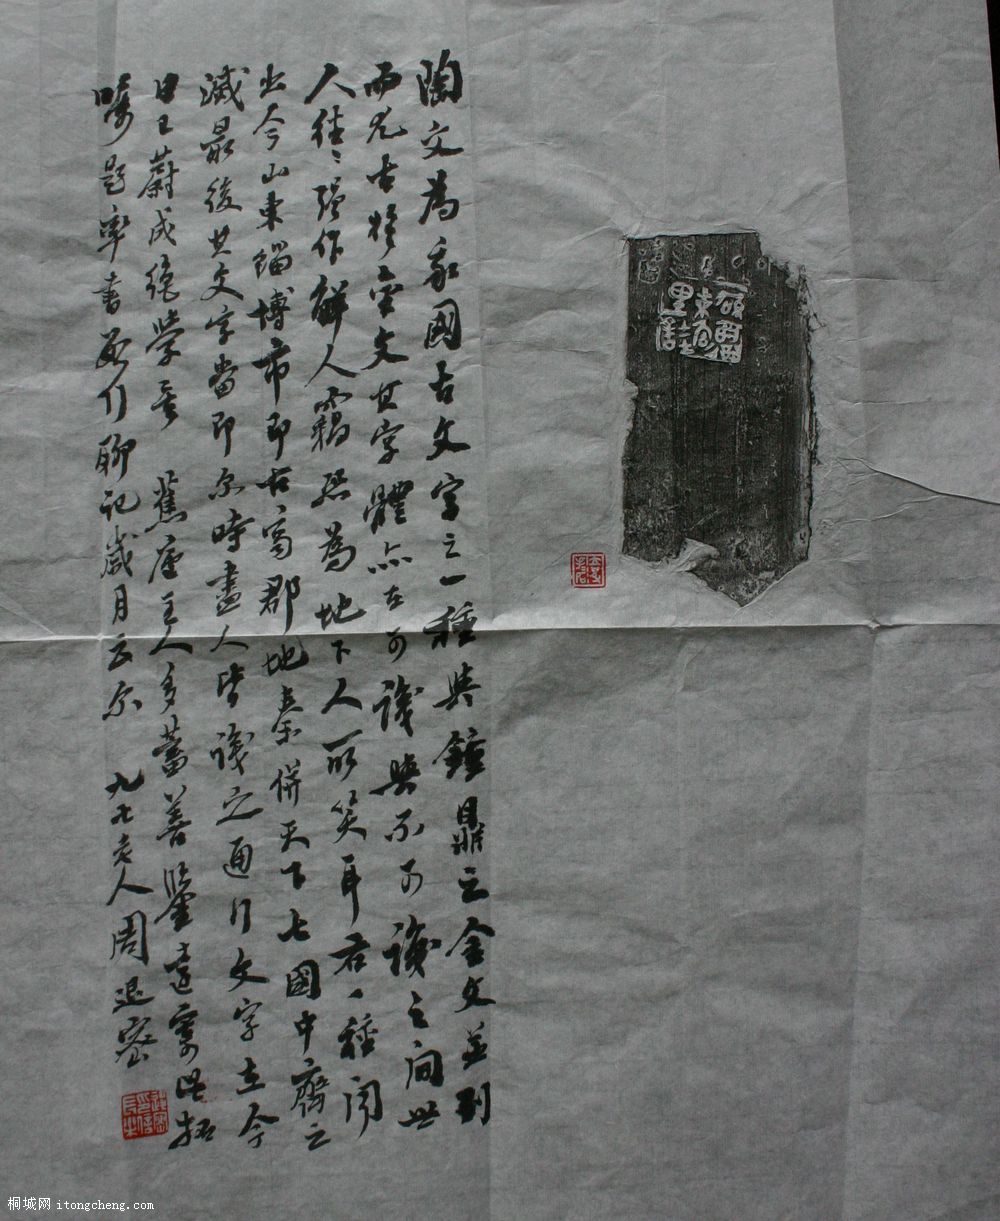 陶文為我國古文字之一種與鐘鼎之金文並列
而尤古樸 文其字體亦在可識與不可識之間世
人往往強作解人竊恐為地下人所笑耳右 種聞
出今山東淄博市即古齊郡地秦併天下七國中齊之
滅最後其文字當即尔時盡人皆識之通行文字在今
日已蔚成絕學矣 蕉庵主人多蓄善鑒遠寄此拓
囑題率書數行聊記歲月云尔 九七老人周退密
桐城网 itongcheng.com